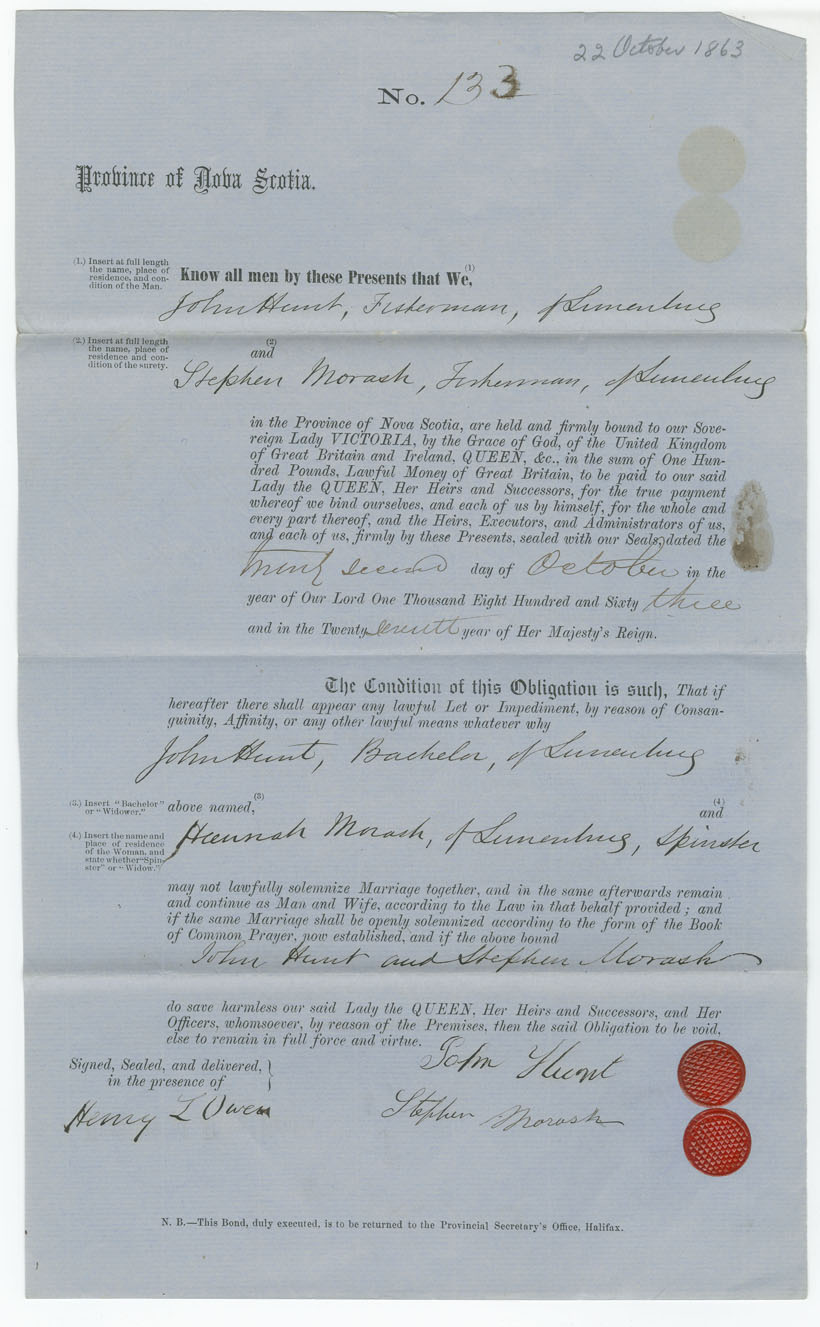 22 October 1863
No. 133
Province of Nova Scotia.
(1.) Insert at full length
the name, place of
residence, and con-
dition of the Man.
Know all men by these Presents that We, (1)
John Hunt, Fisherman, of Lunenburg
(2.) Insert at full length
the name, place of
residence and con-
dition of the surety.
(2)
and
Stephen Morash, Fisherman, of Lunenburg
in the Province of Nova Scotia, are held and firmly bound to our Sove-
reign Lady VICTORIA, by the Grace of God, of the United Kingdom
of Great Britain and Ireland, QUEEN, &c., in the sum of One Hun-
dred Pounds, Lawful Money of Great Britain, to be paid to our said
Lady the QUEEN, Her Heirs and Successors, for the true payment
whereof we bind ourselves, and each of us by himself, for the whole and
every part thereof, and the Heirs, Executors, and Administrators of us,
and each of us, firmly by these Presents, sealed with our Seals, dated the
twenty second day of October in the
year of Our Lord One Thousand Eight Hundred and Sixty three
and in the Twenty seventh year of Her Majesty's Reign.
The Condition of this Obligation is such, That if
hereafter there shall appear any lawful Let or Impediment, by reason of Consan-
guinity, Affinity, or any other lawful means whatever why
John Hunt, Bachelor, of Lunenburg
(3.) Insert "Bachelor"
or "Widower."
above named, (3)
(4)
and
(4.) Insert the name and
place of residence
of the Woman, and
state whether "Spin-
ster" or "Widow."
Hannah Morash, of Lunenburg, Spinster
may not lawfully solemnize Marriage together, and in the same afterwards remain
and continue as Man and Wife, according to the Law in that behalf provided; and
if the same Marriage shall be openly solemnized according to the form of the Book
of Common Prayer, now established, and if the above bound
John Hunt and Stephen Morash
do save harmless our said Lady the QUEEN, Her Heirs and Successors, and Her
Officers, whomsoever, by reason of the Premises, then the said Obligation to be void,
else to remain in full force and virtue.
Signed, Sealed, and delivered,
in the presence of
John Hunt
Henry L Owen
Stephen Morash
N. B.—This Bond, duly executed, is to be returned to the Provincial Secretary's Office, Halifax.